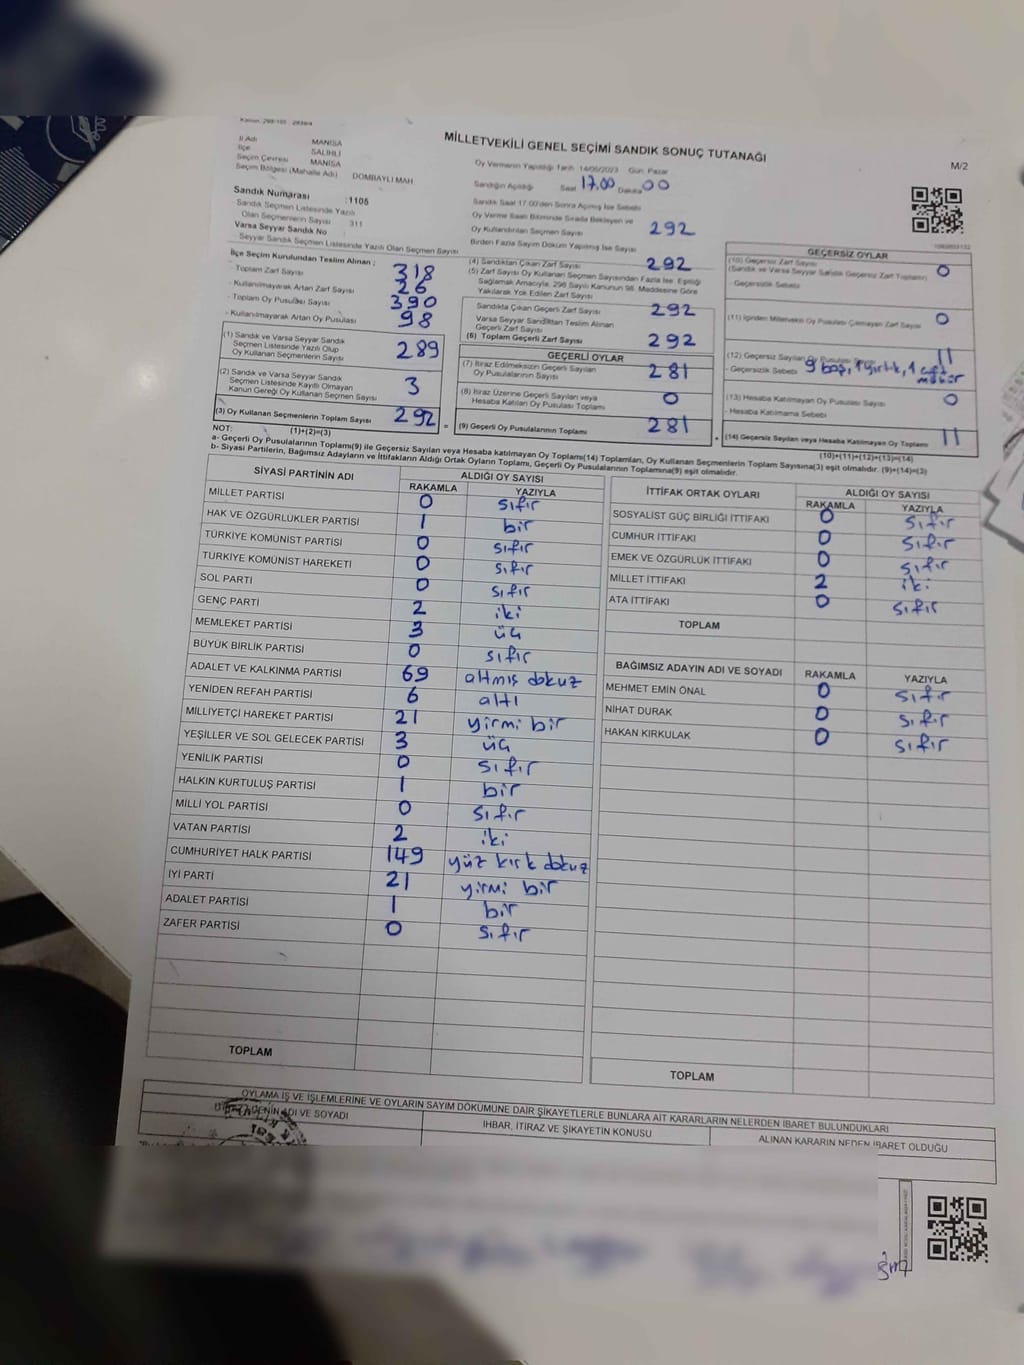 Kanun: 298/105 : 2839/4
MİLLETVEKİLİ GENEL SEÇİMİ SANDIK SONUÇ TUTANAĞI
M/2
İl Adı MANİSA
İlçe SALİHLİ
Seçim Çevresi MANİSA
Seçim Bölgesi (Mahalle Adı) DOMBAYLI MAH
Sandık Numarası :1105
Sandık Seçmen Listesinde Yazılı
Olan Seçmenlerin Sayısı : 311
Varsa Seyyar Sandık No
Seyyar Sandık Seçmen Listesinde Yazılı Olan Seçmen Sayısı
Oy Vermenin Yapıldığı Tarih 14/05/2023 Gün: Pazar
Sandığın Açıldığı Saat 17.00 Dakika 00
Sandık Saat 17:00'den Sonra Açılmış İse Sebebi
Oy Verme Saati Bitiminde Sırada Bekleyen ve
Oy Kullandırılan Seçmen Sayısı 292
Birden Fazla Sayım Döküm Yapılmış İse Sayısı
İlçe Seçim Kurulundan Teslim Alınan ;
- Toplam Zarf Sayısı 318
- Kullanılmayarak Artan Zarf Sayısı 26
- Toplam Oy Pusulası Sayısı 390
- Kullanılmayarak Artan Oy Pusulası 98
(1) Sandık ve Varsa Seyyar Sandık
Seçmen Listesinde Yazılı Olup
Oy Kullanan Seçmenlerin Sayısı 289
(2) Sandık ve Varsa Seyyar Sandık
Seçmen Listesinde Kayıtlı Olmayan
Kanun Gereği Oy Kullanan Seçmen Sayısı 3
(3) Oy Kullanan Seçmenlerin Toplam Sayısı 292
(1)+(2)=(3)
(4) Sandıktan Çıkan Zarf Sayısı 292
(5) Zarf Sayısı Oy Kullanan Seçmen Sayısından Fazla İse Eşitliği
Sağlamak Amacıyla, 298 Sayılı Kanunun 98. Maddesine Göre
Yakılarak Yok Edilen Zarf Sayısı
Sandıkta Çıkan Geçerli Zarf Sayısı 292
Varsa Seyyar Sandıktan Teslim Alınan
Geçerli Zarf Sayısı
(6) Toplam Geçerli Zarf Sayısı 292
GEÇERLİ OYLAR
(7) İtiraz Edilmeksizin Geçerli Sayılan
Oy Pusulalarının Sayısı 281
(8) İtiraz Üzerine Geçerli Sayılan veya
Hesaba Katılan Oy Pusulası Toplamı 0
(9) Geçerli Oy Pusulalarının Toplamı 281
GEÇERSİZ OYLAR
(10) Geçersiz Zarf Sayısı
(Sandık ve Varsa Seyyar Sandık Geçersiz Zarf Toplamı) 0
- Geçersizlik Sebebi
(11) İçinden Milletvekili Oy Pusulası Çıkmayan Zarf Sayısı 0
(12) Geçersiz Sayılan Oy Pusulası Sayısı 11
- Geçersizlik Sebebi 9 boş, 1 yırtık, 1 çift
mühür
(13) Hesaba Katılmayan Oy Pusulası Sayısı 0
- Hesaba Katılmama Sebebi
(14) Geçersiz Sayılan veya Hesaba Katılmayan Oy Toplamı 11
(10)+(11)+(12)+(13)=(14)
NOT:
a- Geçerli Oy Pusulalarının Toplamı(9) ile Geçersiz Sayılan veya Hesaba katılmayan Oy Toplamı(14) Toplamları, Oy Kullanan Seçmenlerin Toplam Sayısına(3) eşit olmalıdır. (9)+(14)=(3)
b- Siyasi Partilerin, Bağımsız Adayların ve İttifakların Aldığı Ortak Oyların Toplamı, Geçerli Oy Pusulalarının Toplamına(9) eşit olmalıdır.
SİYASİ PARTİNİN ADI ALDIĞI OY SAYISI
RAKAMLA YAZIYLA
MİLLET PARTİSİ 0 sıfır
HAK VE ÖZGÜRLÜKLER PARTİSİ 1 bir
TÜRKİYE KOMÜNİST PARTİSİ 0 sıfır
TÜRKİYE KOMÜNİST HAREKETİ 0 sıfır
SOL PARTİ 0 sıfır
GENÇ PARTİ 2 iki
MEMLEKET PARTİSİ 3 üç
BÜYÜK BİRLİK PARTİSİ 0 sıfır
ADALET VE KALKINMA PARTİSİ 69 altmış dokuz
YENİDEN REFAH PARTİSİ 6 altı
MİLLİYETÇİ HAREKET PARTİSİ 21 yirmi bir
YEŞİLLER VE SOL GELECEK PARTİSİ 3 üç
YENİLİK PARTİSİ 0 sıfır
HALKIN KURTULUŞ PARTİSİ 1 bir
MİLLİ YOL PARTİSİ 0 sıfır
VATAN PARTİSİ 2 iki
CUMHURİYET HALK PARTİSİ 149 yüz kırk dokuz
İYİ PARTİ 21 yirmi bir
ADALET PARTİSİ 1 bir
ZAFER PARTİSİ 0 sıfır
TOPLAM
İTTİFAK ORTAK OYLARI ALDIĞI OY SAYISI
RAKAMLA YAZIYLA
SOSYALİST GÜÇ BİRLİĞİ İTTİFAKI 0 sıfır
CUMHUR İTTİFAKI 0 sıfır
EMEK VE ÖZGÜRLÜK İTTİFAKI 0 sıfır
MİLLET İTTİFAKI 2 iki
ATA İTTİFAKI 0 sıfır
TOPLAM
BAĞIMSIZ ADAYIN ADI VE SOYADI RAKAMLA YAZIYLA
MEHMET EMİN ÖNAL 0 sıfır
NİHAT DURAK 0 sıfır
HAKAN KIRKULAK 0 sıfır
TOPLAM
OYLAMA İŞ VE İŞLEMLERİNE VE OYLARIN SAYIM DÖKÜMÜNE DAİR ŞİKAYETLERLE BUNLARA AİT KARARLARIN NELERDEN İBARET BULUNDUKLARI
ADI VE SOYADI
İHBAR, İTİRAZ VE ŞİKAYETİN KONUSU
ALINAN KARARIN NEDEN İBARET OLDUĞU